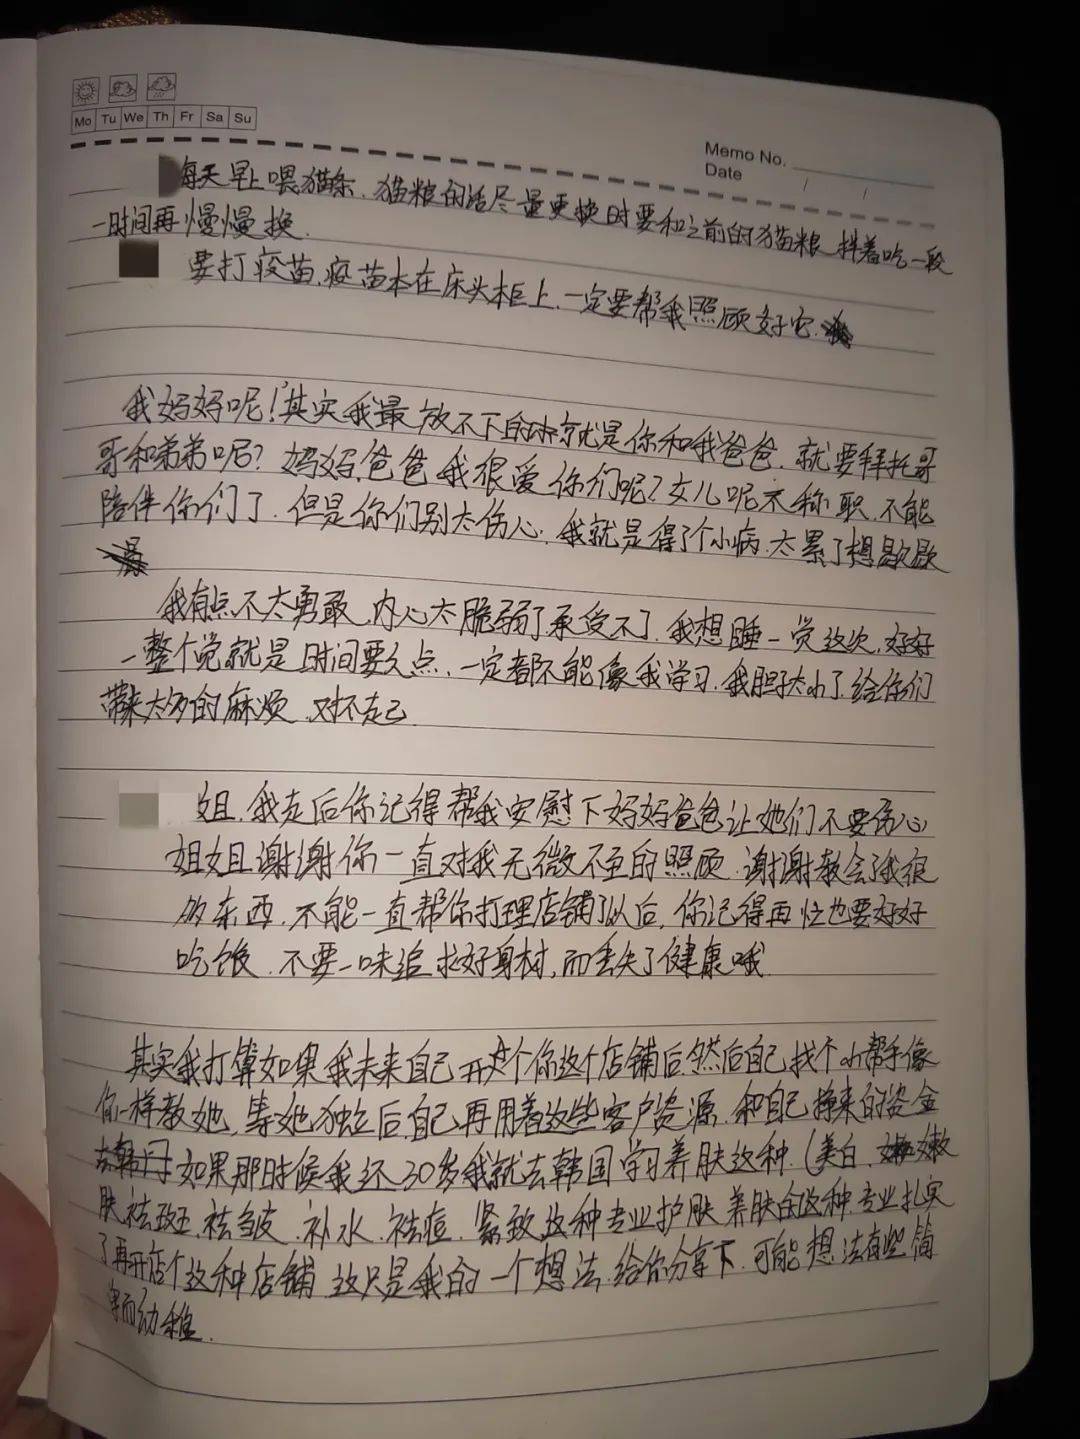 Mo Tu We Th Fr Sa Su
Memo No.
Date / /
每天早上喂猫条.猫粮的话尽量更换时要和之前的猫粮拌着吃一段
一时间再慢慢换.
要打疫苗,疫苗本在床头柜上.一定要帮我照顾好它.
我妈妈呢!其实我最放不下的就是你和我爸爸.就要拜托哥
哥和弟弟呢?妈妈,爸爸我很爱你们呢?女儿呢不称职.不能
陪伴你们了.但是你们别太伤心.我就是得了个小病.太累了想歇歇
我有点不太勇敢.内心太脆弱了承受不了.我想睡一觉这次.好好
一整个觉就是时间要久点.一定都不能像我学习.我胆子太小了.给你们
带来太多的麻烦.对不起
姐.我走后你记得帮我安慰下妈妈爸爸让她们不要伤心
姐姐谢谢你一直对我无微不至的照顾.谢谢教会了我很
多东西.不能一直帮你打理店铺了以后,你记得再忙也要好好
吃饭.不要一味追求好身材,而丢失了健康哦.
其实我打算如果我未来自己开个你这个店铺后.然后自己找个小帮手像
你一样教她,等她独立后.自己再用着这些客户资源.和自己挣来的资金
如果那时候我还30岁我就去韩国学习养肤这种.(美白.嫩
肤.祛斑.祛皱.补水.祛痘.紧致这种专业护肤养肤的这种专业扎实
了再开店个这种店铺这只是我的一个想法.给你分享下.可能想法有些简
单而幼稚.